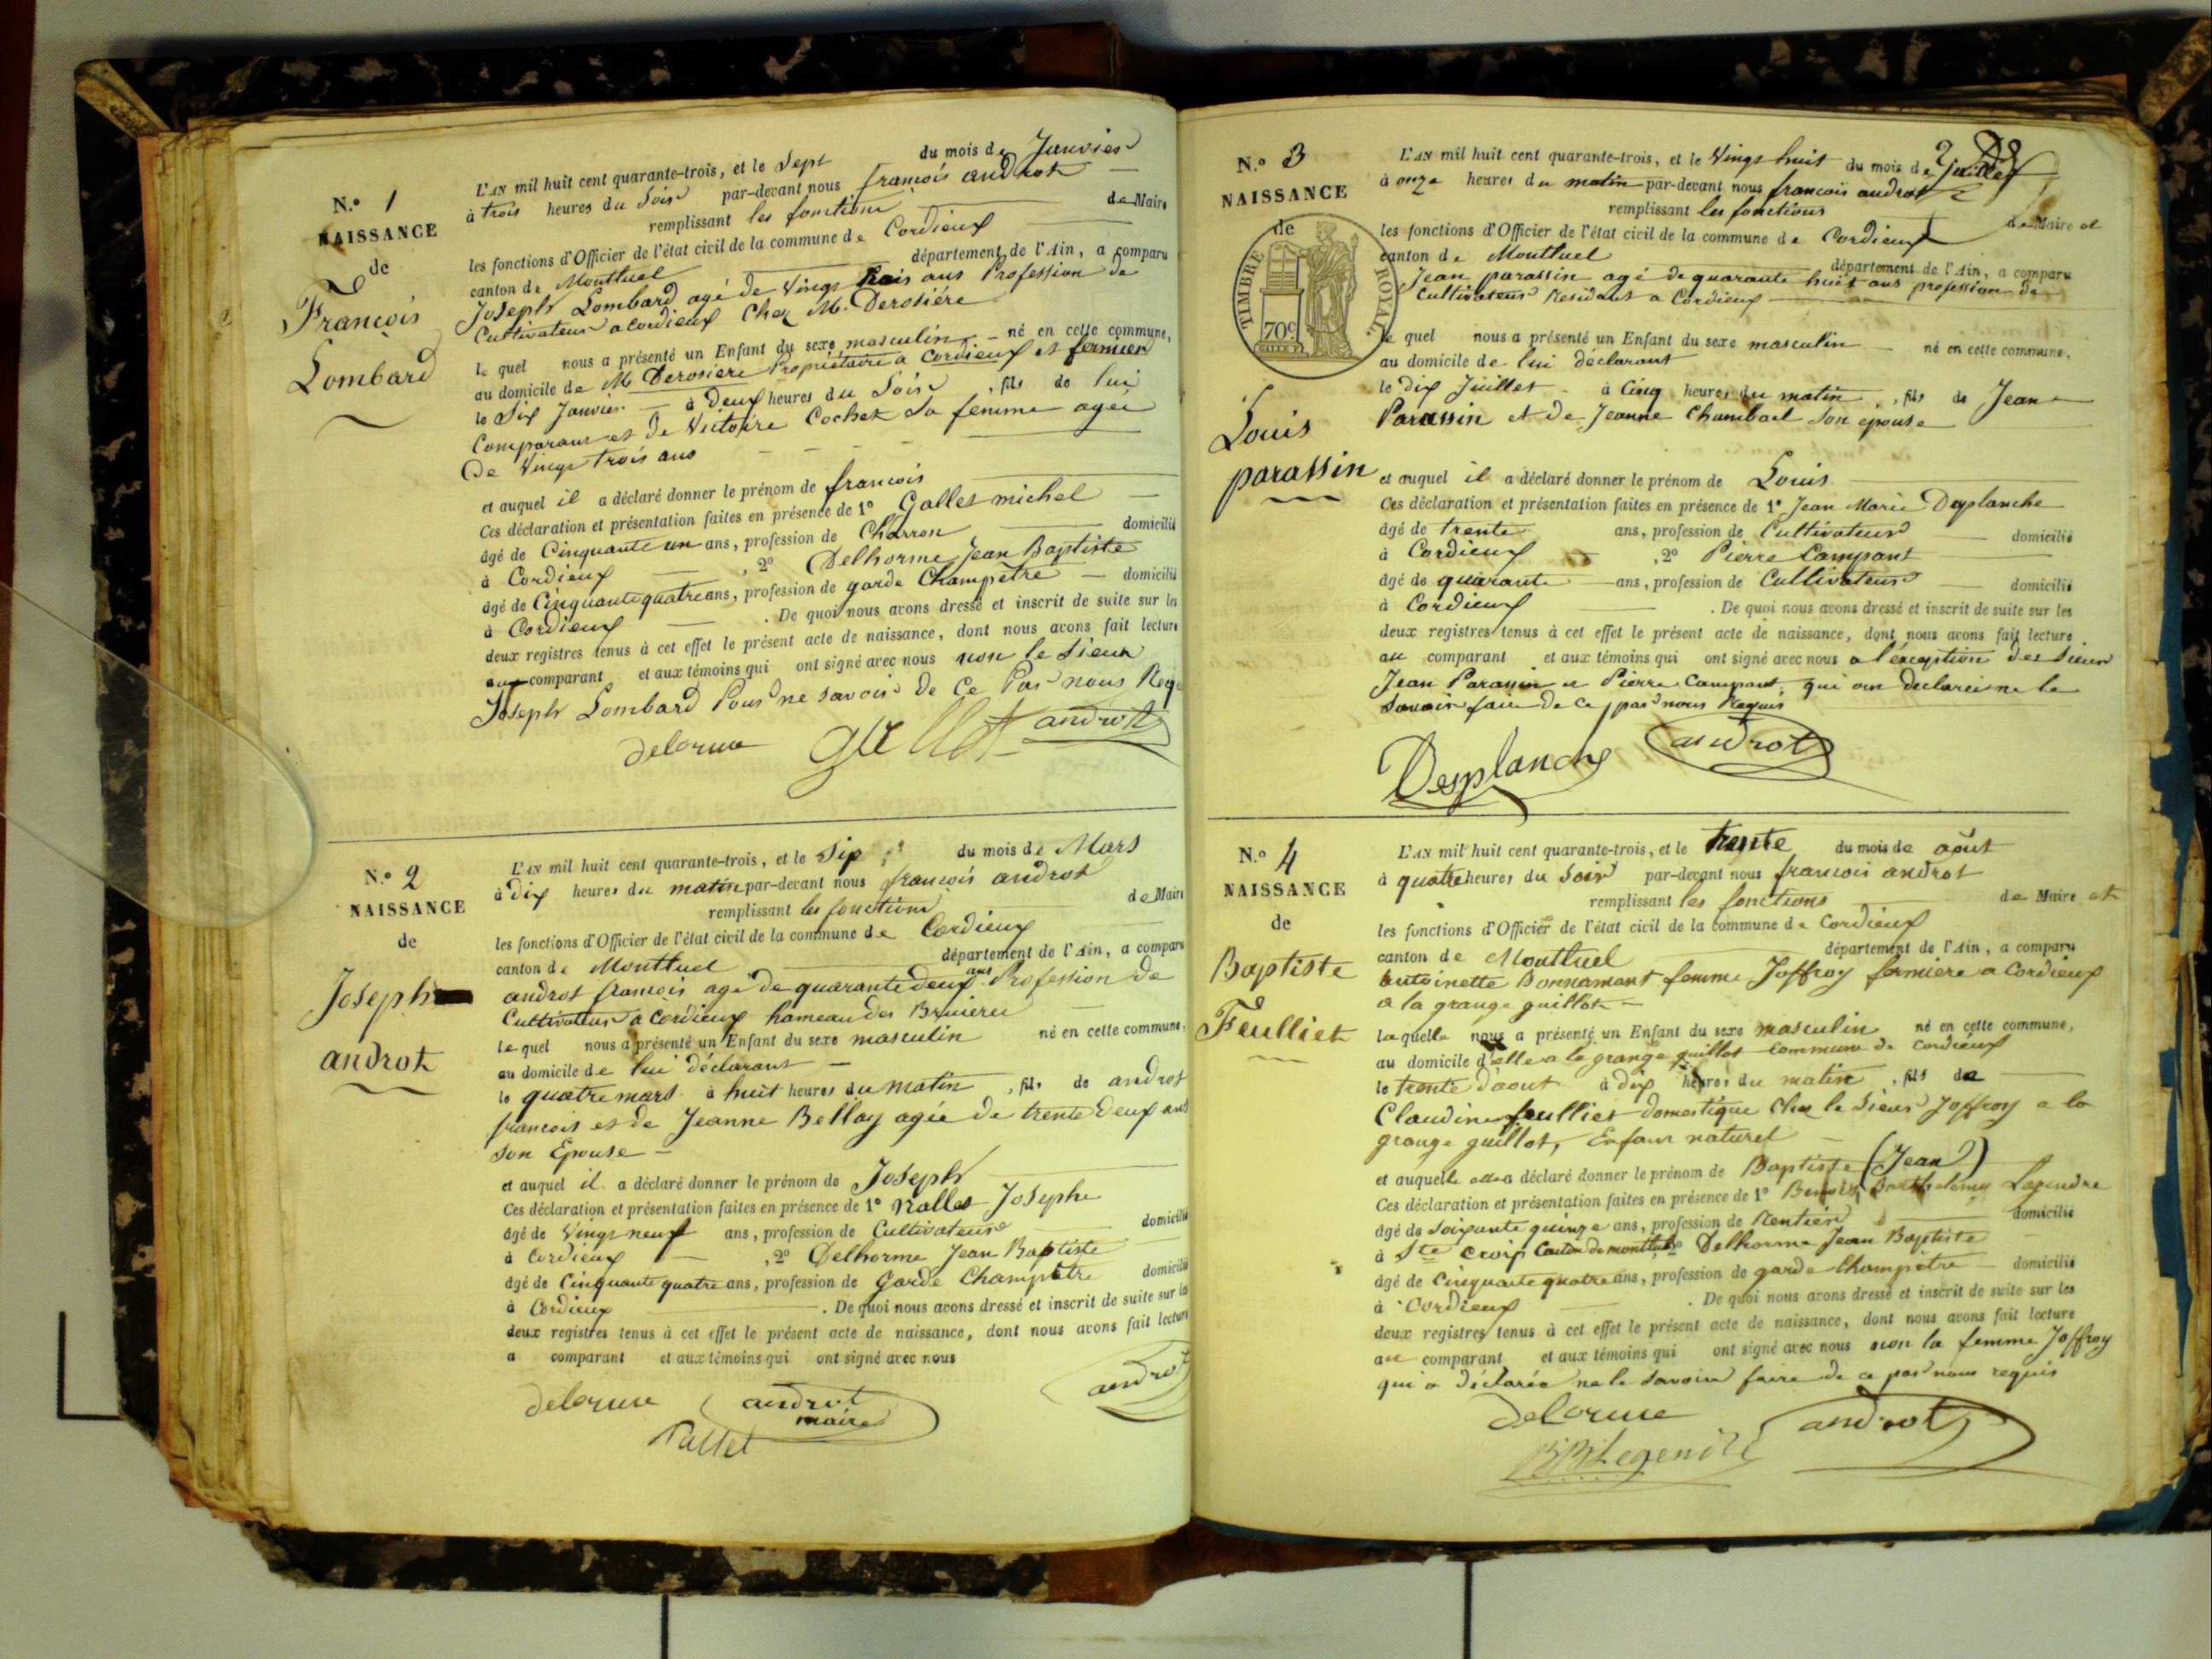 N.° 1
NAISSANCE
de
François
Lombard
L'AN mil huit cent quarante-trois, et le Sept du mois de Janvier
à trois heures du Soir par-devant nous françois androt
remplissant les fonctions de Maire
les fonctions d'Officier de l'état civil de la commune de Cordieux
canton de Montluel département de l'Ain, a comparu
Joseph Lombard agé de Vingt trois ans Profession de
Cultivateur a Cordieux Chez M. Derosiére
le quel nous a présenté un Enfant du sexe masculin né en cette commune,
au domicile de M Derosiere Propriétaire a Cordieux et fermier
le Six Janvier à Deux heures du Soir, fils de lui
Comparant et de Victoire Cochet Sa femme agée
De Vingt trois ans
et auquel il a déclaré donner le prénom de françois
Ces déclaration et présentation faites en présence de 1° Gallet michel
âgé de Cinquante un ans, profession de Charron domicilié
à Cordieux, 2° Delhorme Jean Baptiste
âgé de Cinquante quatre ans, profession de garde Champètre domicilié
à Cordieux. De quoi nous avons dressé et inscrit de suite sur les
deux registres tenus à cet effet le présent acte de naissance, dont nous avons fait lecture
au comparant et aux témoins qui ont signé avec nous non le Sieur
Joseph Lombard Pour ne savoir De Ce Par nous Req
delorme gallet androt
N.° 2
NAISSANCE
de
Joseph
androt
L'AN mil huit cent quarante-trois, et le Six du mois de Mars
à dix heures du matin par-devant nous françois androt
remplissant les fonctions de Maire
les fonctions d'Officier de l'état civil de la commune de Cordieux
canton de Montluel département de l'Ain, a comparu
androt françois age de quarante deux ans Profession de
Cultivateur a Cordieux hameau des Bruieres
le quel nous a présenté un Enfant du sexe masculin né en cette commune,
au domicile de lui déclarant
le quatre mars à huit heures du matin, fils de androt
francois et de Jeanne Bellay agée de trente deux ans
Son Epouse
et auquel il a déclaré donner le prénom de Joseph
Ces déclaration et présentation faites en présence de 1° Josephe
âgé de Vingt neuf ans, profession de Cultivateur domicilié
à Cordieux, 2° Delhorme Jean Baptiste
âgé de Cinquante quatre ans, profession de Garde Champètre domicilié
à Cordieux. De quoi nous avons dressé et inscrit de suite sur les
deux registres tenus à cet effet le présent acte de naissance, dont nous avons fait lecture
a comparant et aux témoins qui ont signé avec nous
delorme androt androt
maire
N.° 3
NAISSANCE
de
TIMBRE ROYAL
70c
Louis
parassin
L'AN mil huit cent quarante-trois, et le Vingt huit du mois de Juillet
à onze heures du matin par-devant nous francois androt
remplissant les fonctions de Maire et
les fonctions d'Officier de l'état civil de la commune de Cordieux
canton de Montluel département de l'Ain, a comparu
Jean parassin agé de quarante huit ans profession de
Cultivateur Residant a Cordieux
le quel nous a présenté un Enfant du sexe masculin né en cette commune,
au domicile de lui déclarant
le dix Juillet à Cinq heures du matin, fils de Jean
Parassin et de Jeanne Chambard Son epouse
et auquel il a déclaré donner le prénom de Louis
Ces déclaration et présentation faites en présence de 1° Jean Marie Deplanche
âgé de trente ans, profession de Cultivateur domicilié
à Cordieux, 2° Pierre Campant
âgé de quarante ans, profession de Cultivateur domicilié
à Cordieux. De quoi nous avons dressé et inscrit de suite sur les
deux registres tenus à cet effet le présent acte de naissance, dont nous avons fait lecture
au comparant et aux témoins qui ont signé avec nous a l'exception des Sieur
Jean Parassin et Pierre Campant, qui on declarei ne le
Savoir faire de ce par nous Requis
Desplanche androt
N.° 4
NAISSANCE
de
Baptiste
Feulliet
L'AN mil huit cent quarante-trois, et le trente du mois de août
à quatre heures du Soir par-devant nous francois androt
remplissant les fonctions de Maire et
les fonctions d'Officier de l'état civil de la commune de Cordieux
canton de Montluel département de l'Ain, a comparu
antoinette Bonnamant femme Joffroy fermiere a Cordieux
a la grange guillot
laquelle nous a présenté un Enfant du sexe masculin né en cette commune,
au domicile d'elle a la grange guillot commune de Cordieux
le trente d'aout à dix heures du matin, fils de
Claudine feulliet domestique Chez le Sieur Joffroy a la
grange guillot, Enfant naturel
et auquelle elle a déclaré donner le prénom de Baptiste (Jean)
Ces déclaration et présentation faites en présence de 1° Benoit Barthelemy Legendre
âgé de Soixante quinze ans, profession de Rentier domicilié
à Ste Croix Canton de montluel 2° Delhorme Jean Baptiste
âgé de Cinquante quatre ans, profession de garde Champètre domicilié
à Cordieux. De quoi nous avons dressé et inscrit de suite sur les
deux registres tenus à cet effet le présent acte de naissance, dont nous avons fait lecture
au comparant et aux témoins qui ont signé avec nous non la femme Joffroy
qui a déclarée ne le Savoir faire de ce par nous requis
delorme androt
BBLegendre